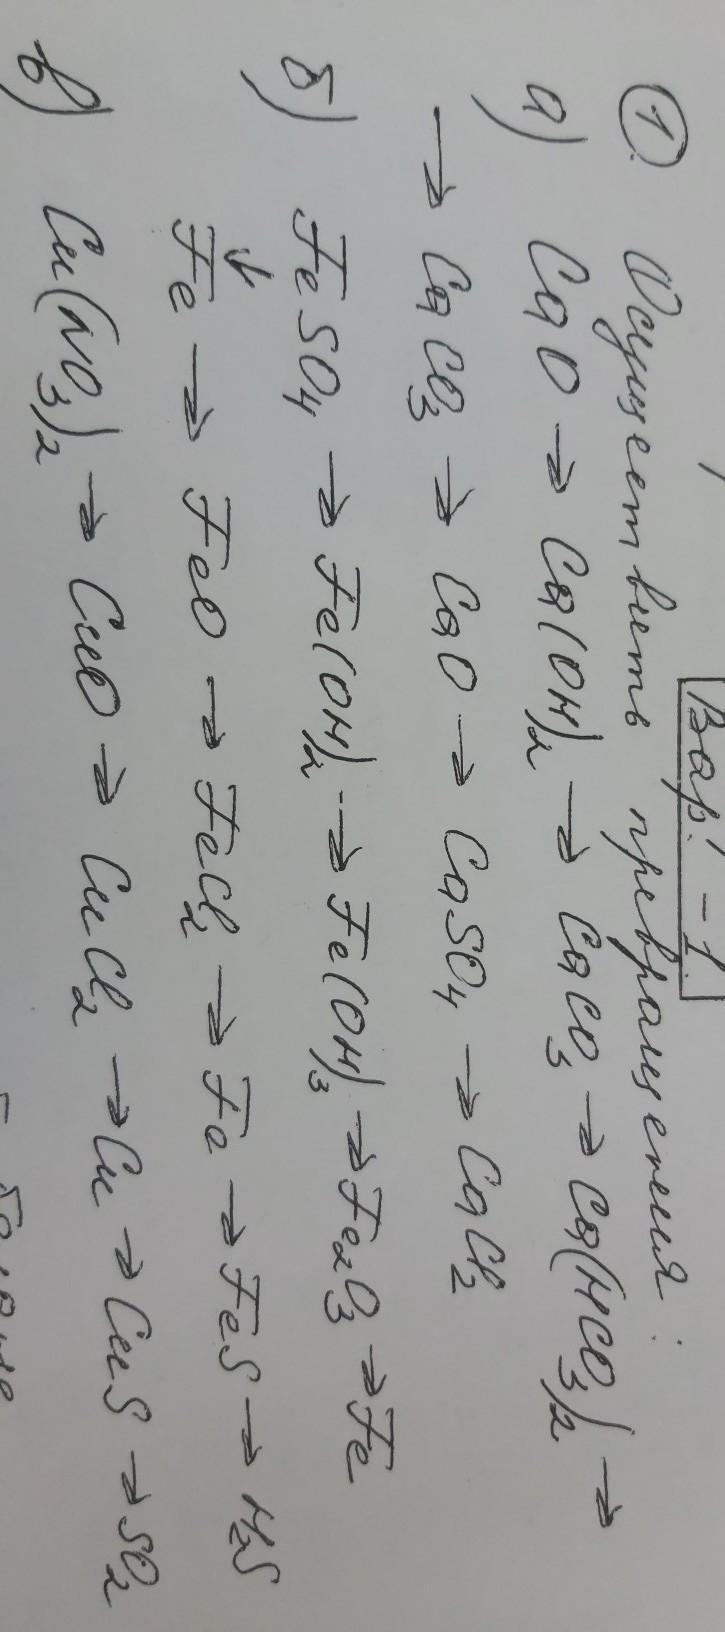 Вар. - 1.
① Осуществить превращения:
а) CaO → Ca(OH)₂ → CaCO₃ → Ca(HCO₃)₂ →
→ CaCO₃ → CaO → CaSO₄ → CaCl₂
б) FeSO₄ → Fe(OH)₂ → Fe(OH)₃ → Fe₂O₃ → Fe
↓
Fe → FeO → FeCl₂ → Fe → FeS → H₂S
в) Cu(NO₃)₂ → CuO → CuCl₂ → Cu → CuS → SO₂